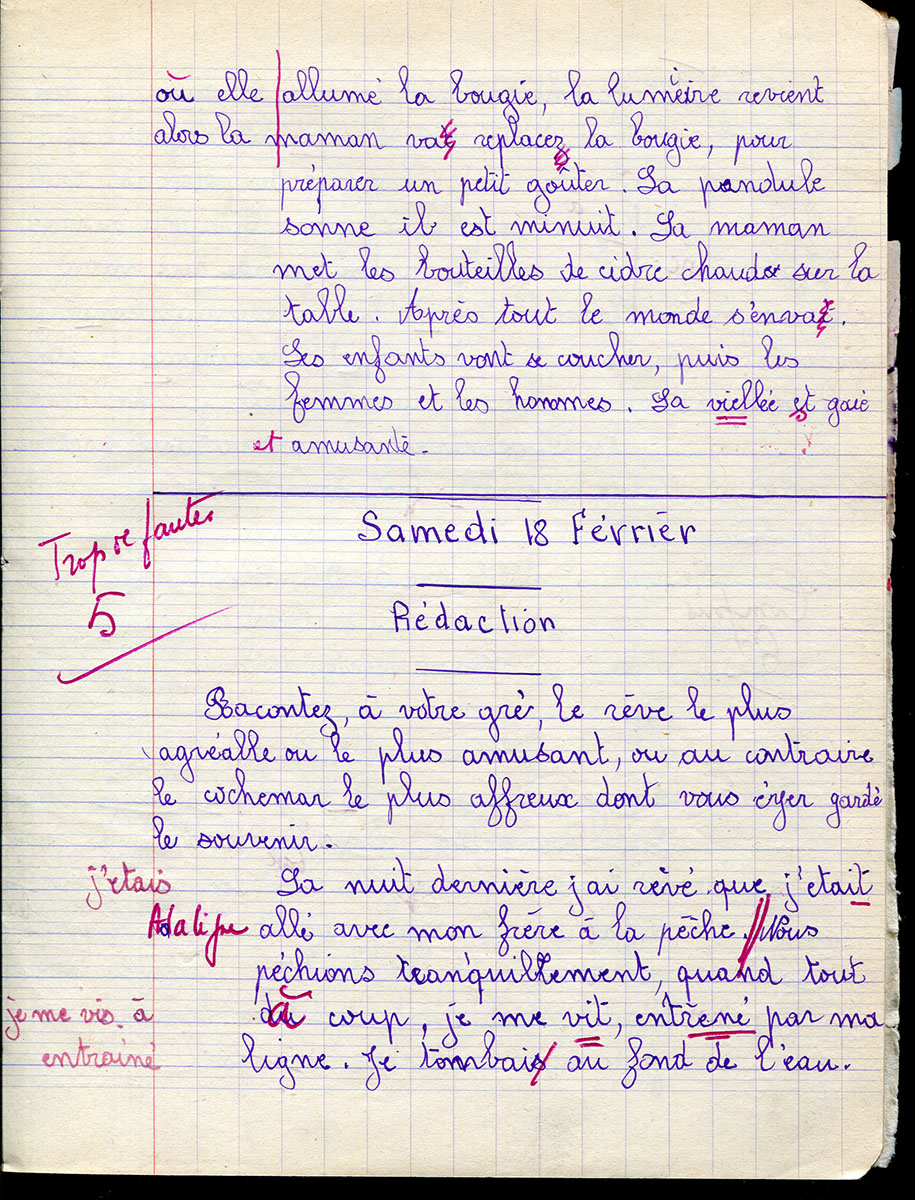 où elle allumé la bougie, la lumière revient
alors la maman vat replacez la bougie, pour
préparer un petit goûter. La pandule
sonne il est minuit. La maman
met les bouteilles de cidre chaud sur la
table. Après tout le monde s'envat.
Les enfants vont se coucher, puis les
femmes et les hommes. La viellée et gaié
et amusante.
Samedi 18 Février
Trop de fautes
5
Rédaction
Racontez, à votre gré, le rêve le plus
agréable ou le plus amusant, ou au contraire
le cochemar le plus affreux dont vous éyer gardé
le souvenir.
j'etais La nuit dernière j'ai rêvé que j'était
A la ligne allé avec mon frère à la pêche. // Nous
péchions tranquillement, quand tout
à coup, je me vit, entrené par ma
je me vis à
entrainé ligne. Je tombais au fond de l'eau.